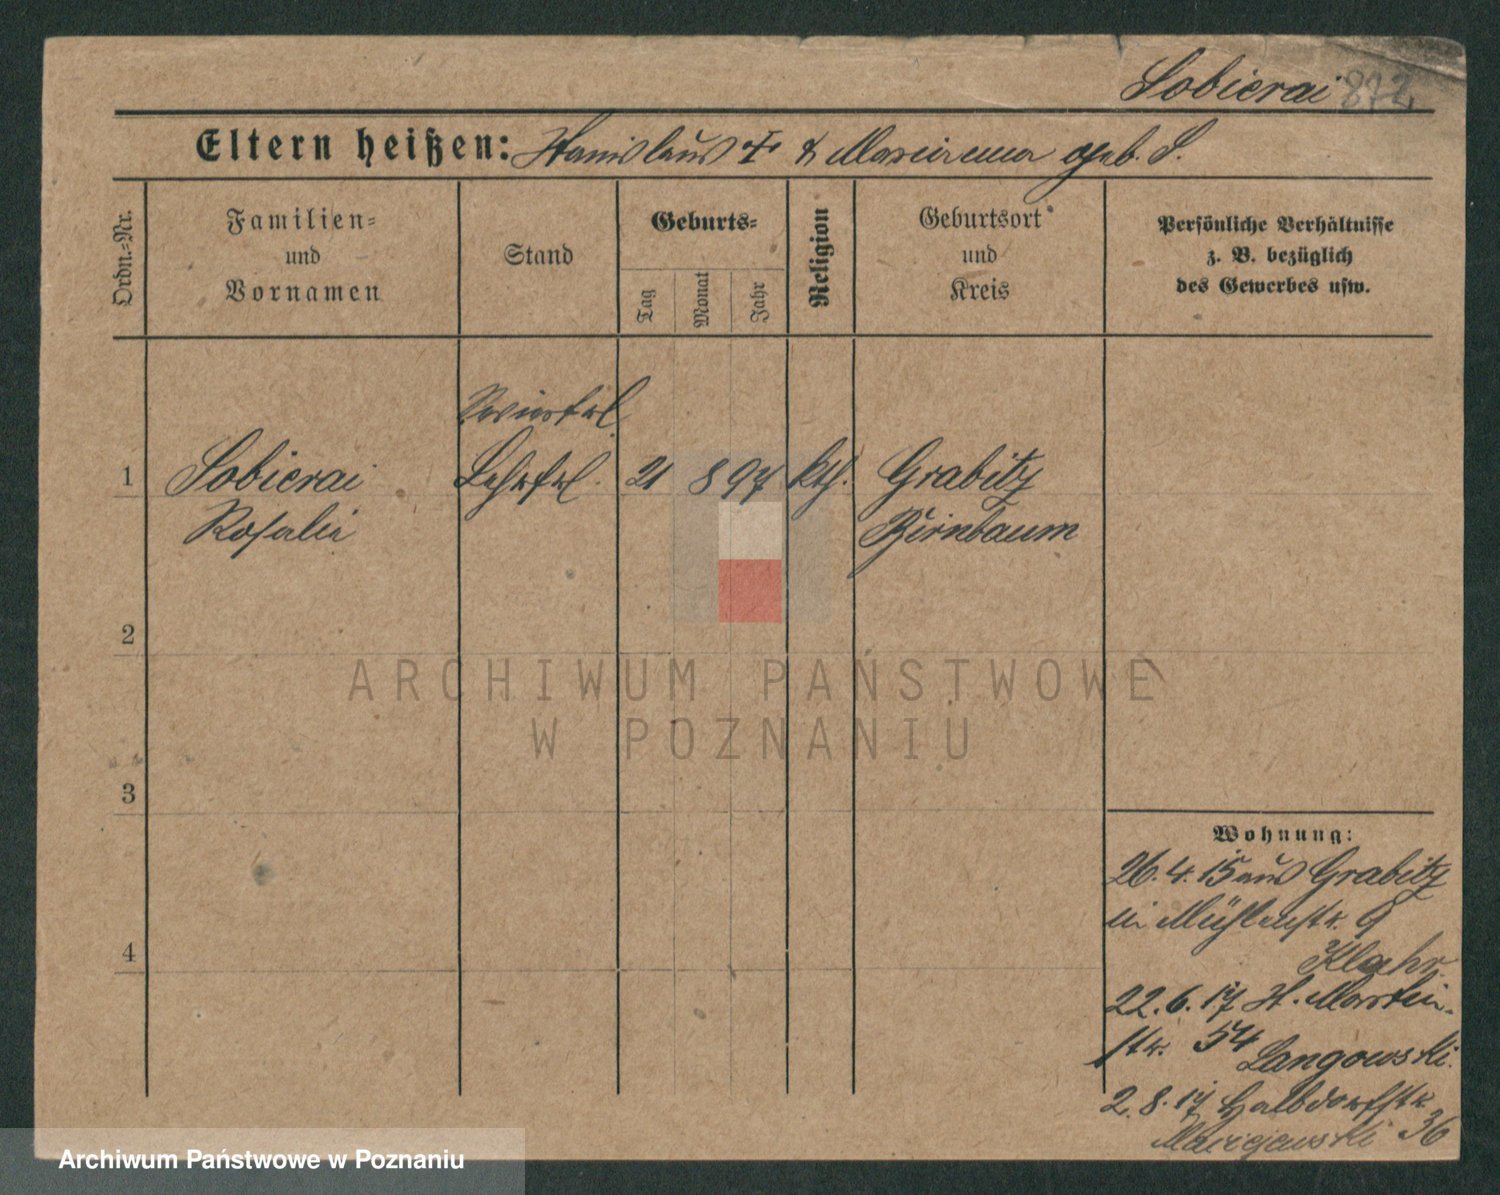 Sobierai 872
Eltern heißen: Stanislaus † & Marianna geb. S.
Ordn.-Nr.
Familien-
und
Vornamen
Stand
Geburts-
Tag
Monat
Jahr
Religion
Geburtsort
und
Kreis
Persönliche Verhältnisse
z. B. bezüglich
des Gewerbes usw.
1 Sobierai Lehrfrl. 21 8 97 kth. Grabitz
Rosalie Birnbaum
2
3
4
Wohnung:
26.4.15 aus Grabitz
in Mühlenstr. 9
Klahr
22.6.17 St. Martin-
str. 54
Langowski.
2.8.17 Halbdorfstr.
Maciejewski 36
ARCHIWUM PAŃSTWOWE
W POZNANIU
Archiwum Państwowe w Poznaniu